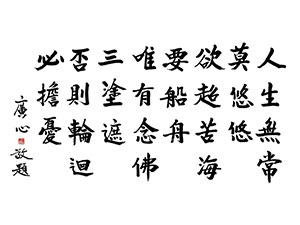 人生無常
莫悠悠
欲超苦海
要船舟
唯有念佛
三塗遮
否則輪迴
必擔憂
廣心敬題